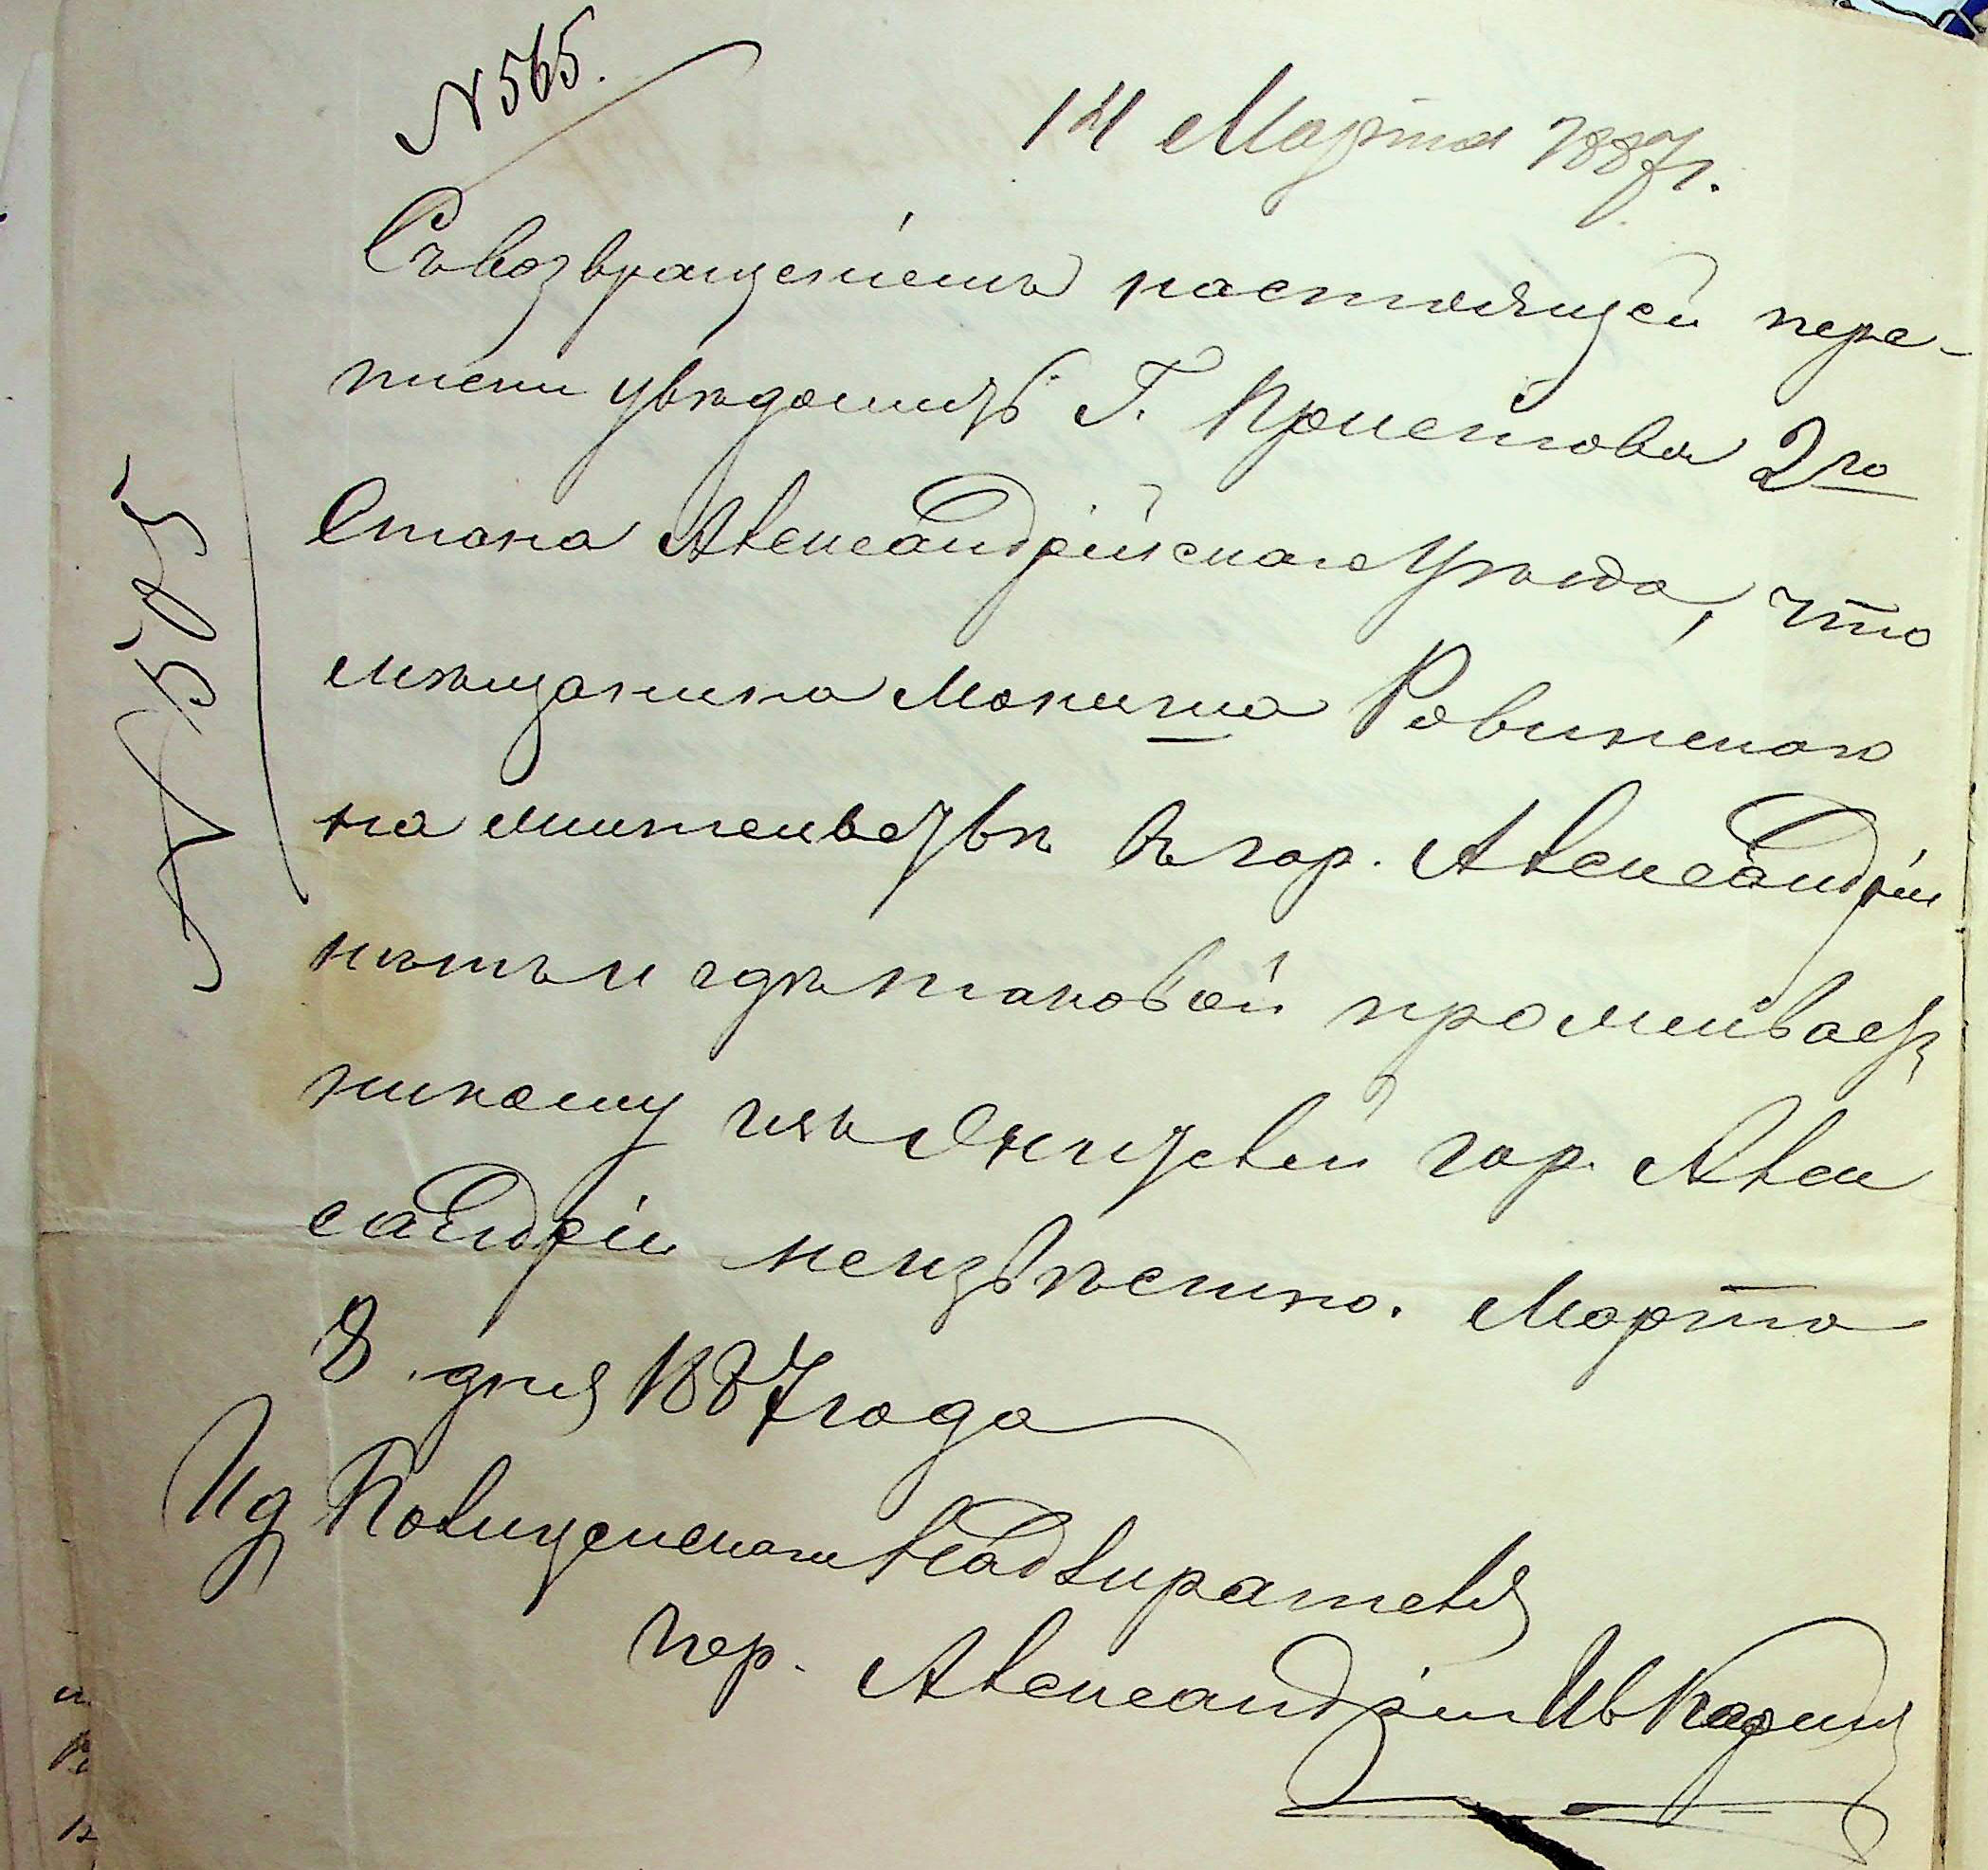 № 565.
14 Марта 1887г.
Съ возвращеніемъ настоящей пере-
писки увѣдомить Г. Пристова 2го
Стана Александрійскаго Уѣзда, что
мѣщанина Ровинскаго
на жительствѣ въ гор. Александріи
нѣтъ и гдѣ таковой проживаетъ
никому изъ жителей гор. Алек
сандріи неизвѣстно. Марта
8 дня 1887 года
Ид Полицейскаго Надзирателя
гор. Александріи
№ 505